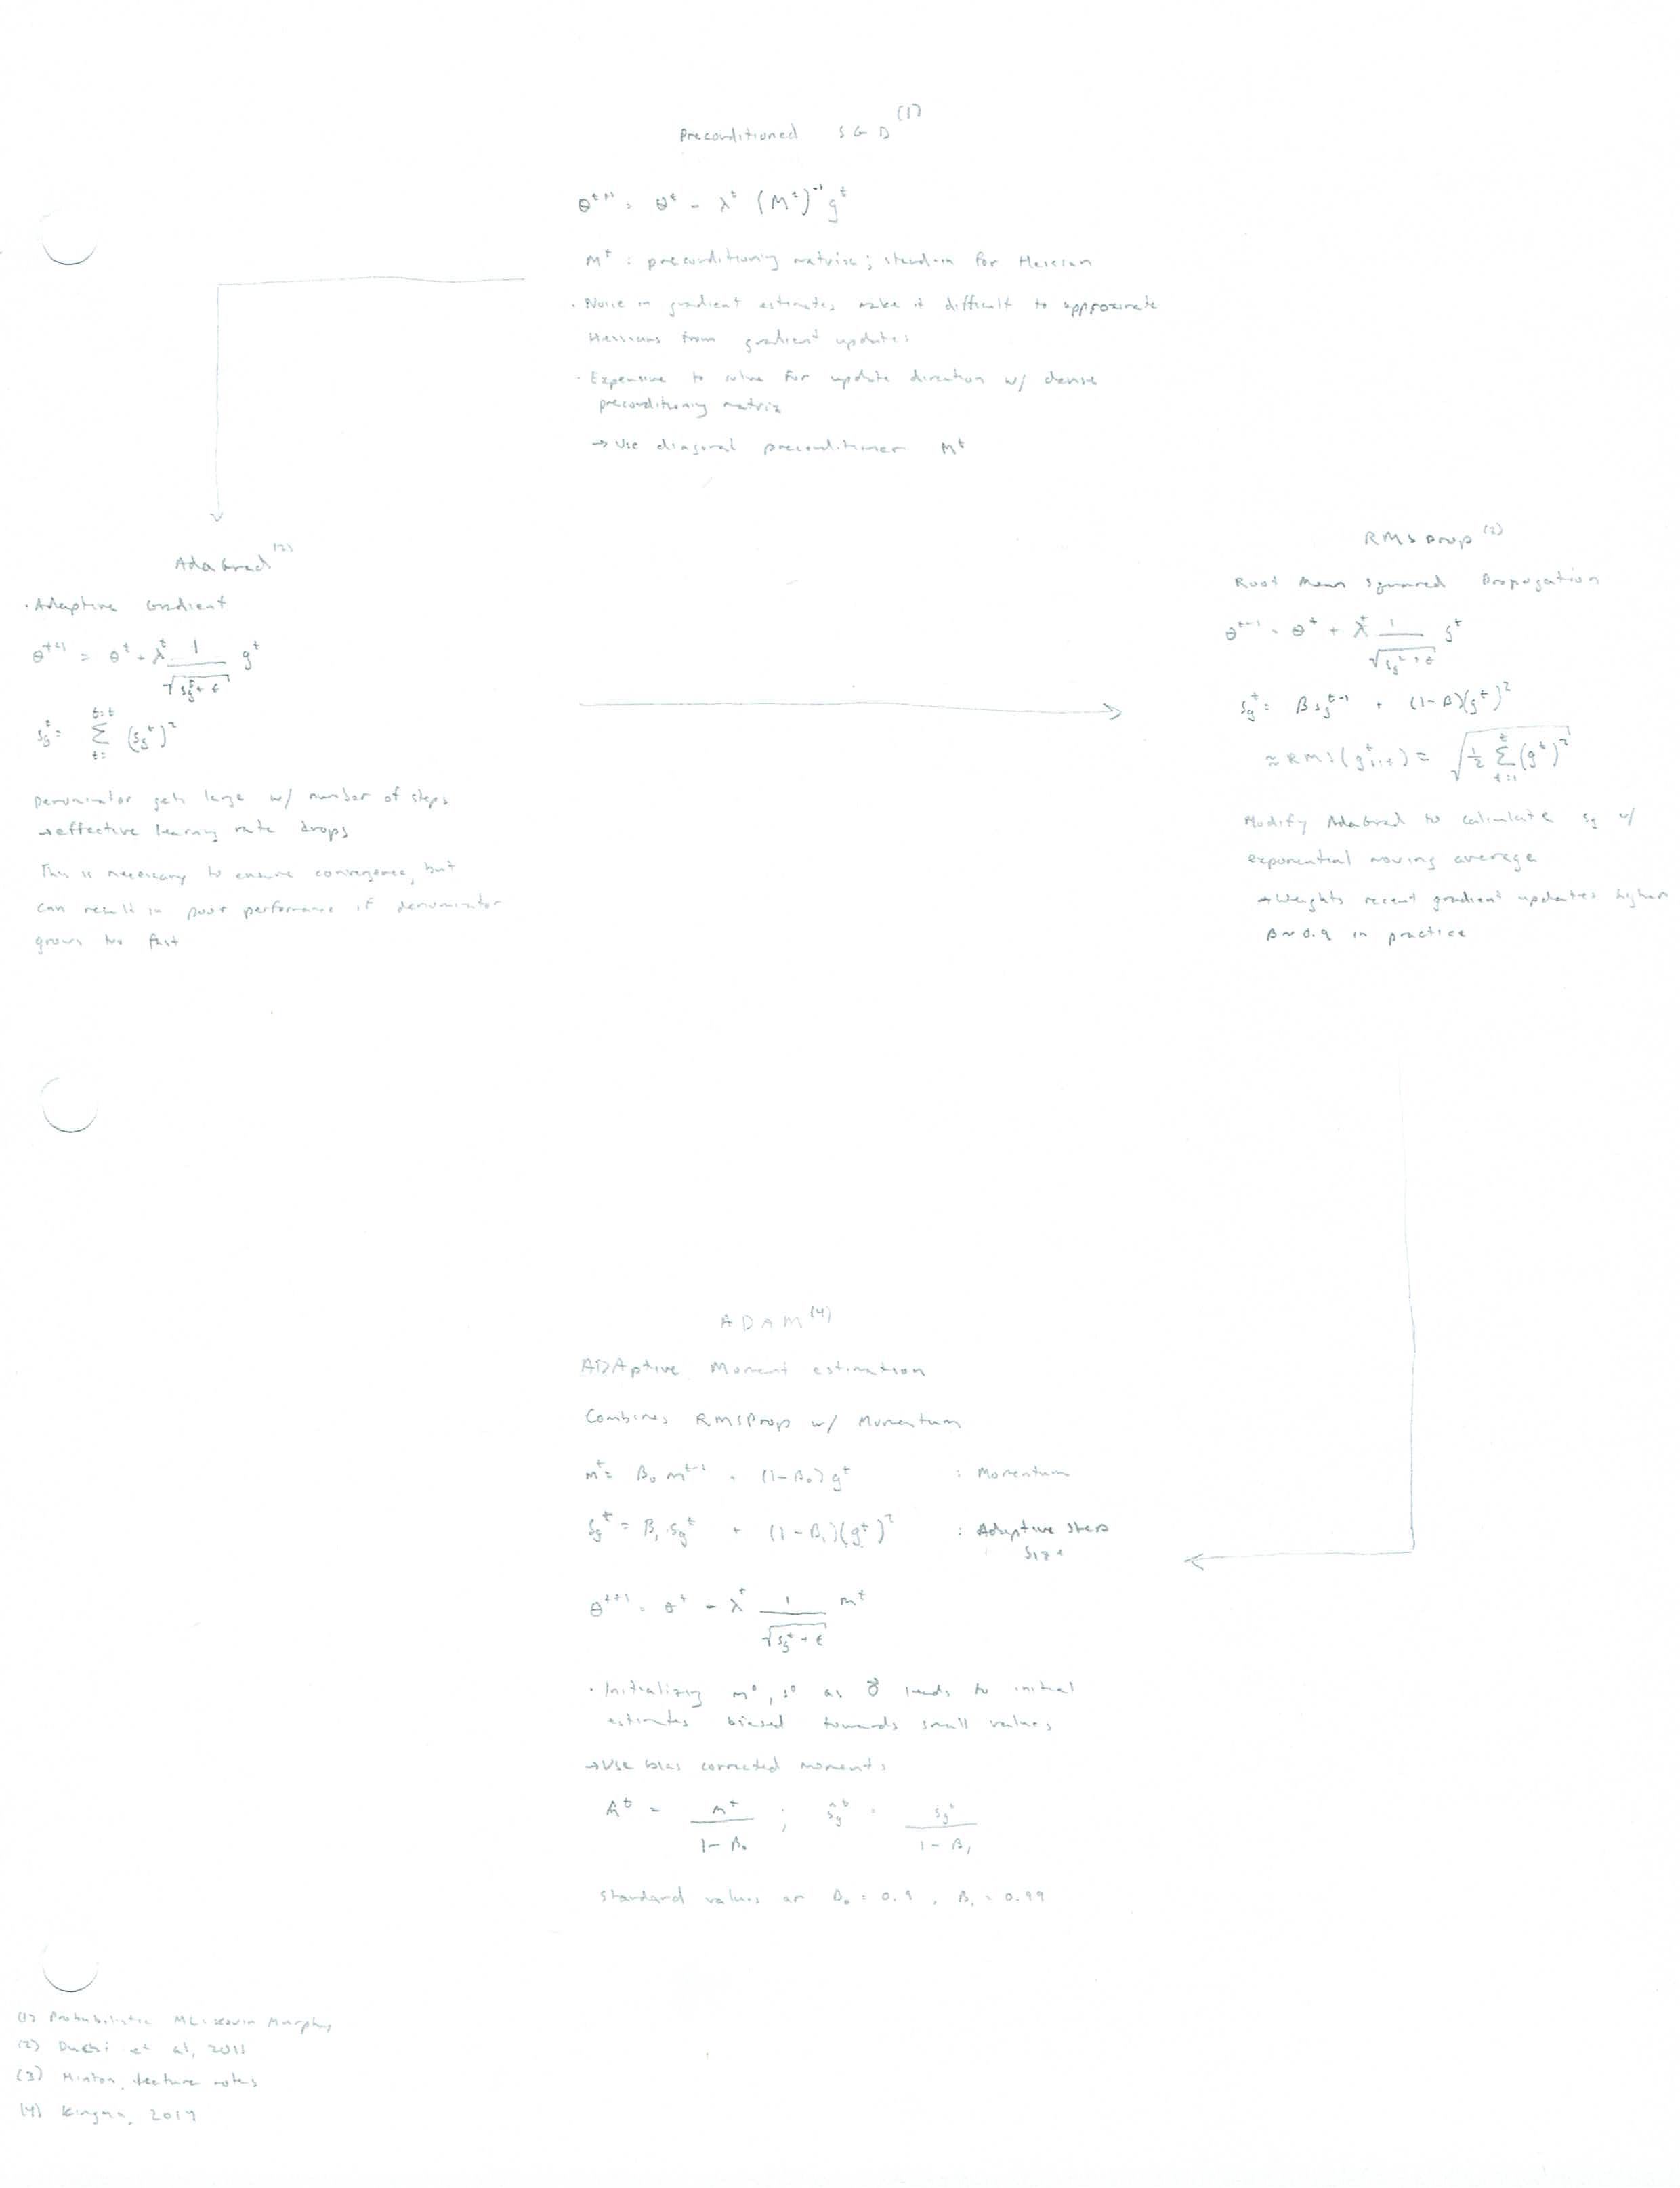 Preconditioned SGD (1)
θ^{t+1} = θ^t - λ^t (M^t)^{-1} g^t
M^t : preconditioning matrix; stand-in for Hessian
· Noise in gradient estimates make it difficult to approximate
Hessians from gradient updates
· Expensive to solve for update direction w/ dense
preconditioning matrix
→ Use diagonal preconditioner M^t
AdaGrad (2)
· Adaptive Gradient
θ^{t+1} = θ^t - λ^t 1/√(s_g^t + ε) g^t
s_g^t = Σ_{t=}^{t=t} (s_g^t)^2
Denominator gets large w/ number of steps
→ effective learning rate drops
This is necessary to ensure convergence, but
can result in poor performance if denominator
grows too fast
RMSProp (3)
Root Mean Squared Propogation
θ^{t+1} = θ^t + λ^t 1/√(s_g^2 + ε) g^t
s_g^t = β s_g^{t-1} + (1-β)(g^t)^2
≈ RMS(g^t_{1:t}) = √(1/2 Σ_{t=1}^t (g^t)^2)
Modify AdaGrad to calculate s_g w/
exponential moving average
→ Weights recent gradient updates higher
β ~ 0.9 in practice
ADAM (4)
ADAptive Moment estimation
Combines RMSProp w/ Momentum
m^t = β_0 m^{t-1} + (1-β_0) g^t : Momentum
s_g^t = β_1 s_g^t + (1-β_1)(g^t)^2 : Adaptive step
size
θ^{t+1} = θ^t - λ^t 1/√(s_g^t + ε) m^t
· Initializing m^0, s^0 as 0⃗ leads to initial
estimates biased towards small values
→ Use bias corrected moments
m̂^t = m^t/(1-β_0) ; ŝ_g^t = s_g^t/(1-β_1)
Standard values ar β_0 = 0.9, β_1 = 0.99
(1) Probabilistic ML: Kevin Murphy
(2) Duchi et al, 2011
(3) Hinton, lecture notes
(4) Kingma, 2014